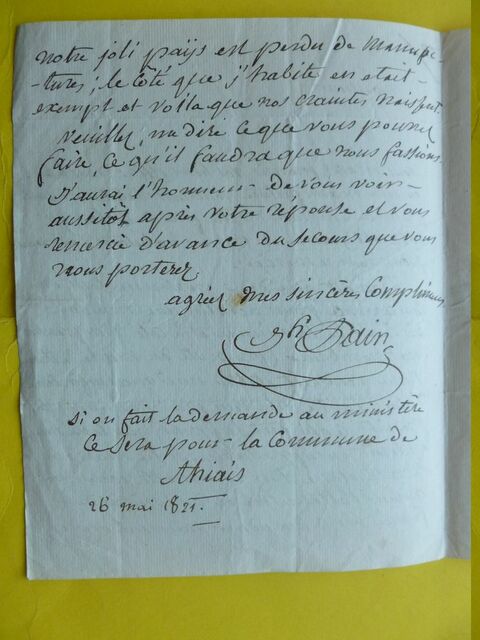 notre joli païs est perdu de manufac-
-tures; le côté que j'habite en etait
exempt et voila que nos craintes naissent.
veuillez me dire ce que vous pourrez
faire, ce qu'il faudra que nous fassions
J'aurai l'honneur de vous voir
aussitôt après votre réponse et vous
remercie d'avance du secours que vous
nous porterez.
agréez mes sincères Complimens
Pain
si on fait la demande au ministère
Ce sera pour la Commune de
Thiais
26 mai 1821.